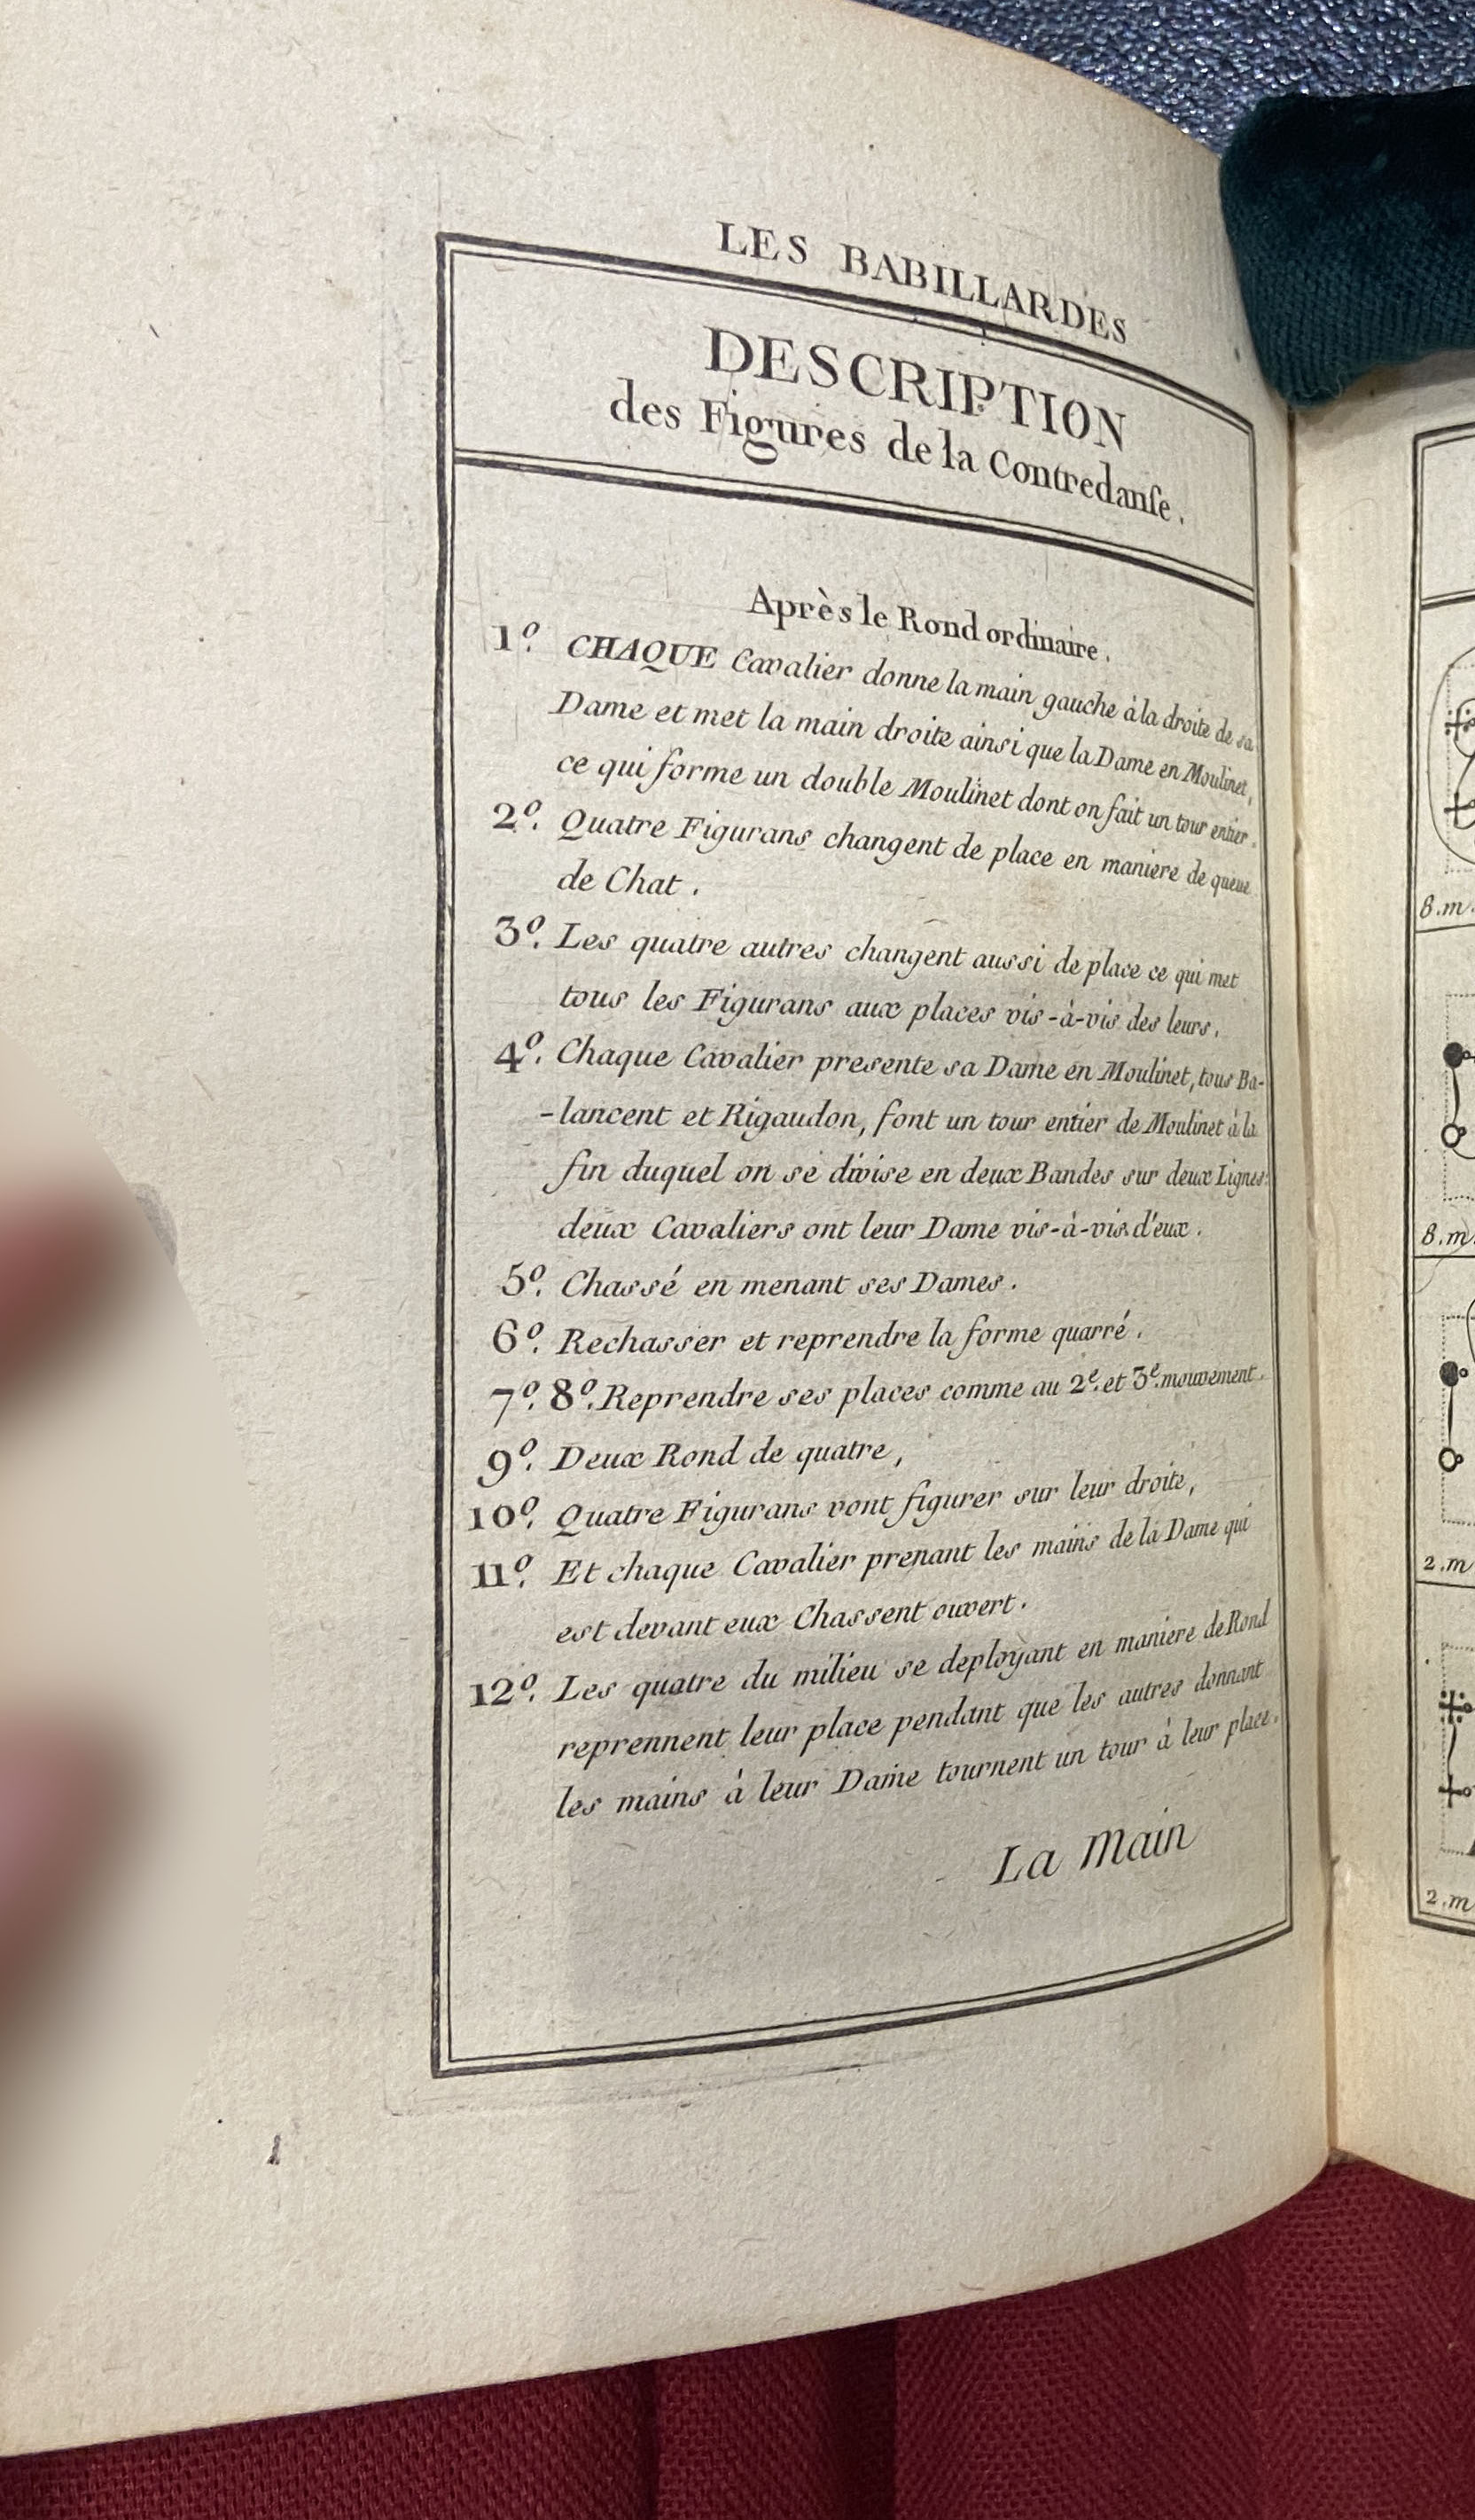 LES BABILLARDES
DESCRIPTION
des Figures de la Contredanſe.
Après le Rond ordinaire.
1º. CHAQUE Cavalier donne la main gauche à la droite de sa
Dame et met la main droite ainsi que la Dame en Moulinet,
ce qui forme un double Moulinet dont on fait un tour entier.
2º. Quatre Figurans changent de place en maniere de queue
de Chat.
3º. Les quatre autres changent aussi de place ce qui met
tous les Figurans aux places vis-à-vis des leurs.
4º. Chaque Cavalier presente sa Dame en Moulinet, tous Ba-
-lancent et Rigaudon, font un tour entier de Moulinet à la
fin duquel on se divise en deux Bandes sur deux Lignes
deux Cavaliers ont leur Dame vis-à-vis d'eux.
5º. Chassé en menant ses Dames.
6º. Rechasser et reprendre la forme quarré.
7º. 8º. Reprendre ses places comme au 2e. et 3e. mouvement.
9º. Deux Rond de quatre,
10º. Quatre Figurans vont figurer sur leur droite,
11º. Et chaque Cavalier prenant les mains de la Dame qui
est devant eux Chassent ouvert.
12º. Les quatre du milieu se deployant en maniere de Rond
reprennent leur place pendant que les autres donnant
les mains à leur Dame tournent un tour à leur place.
La Main
8.m.
8.m.
2.m
2.m